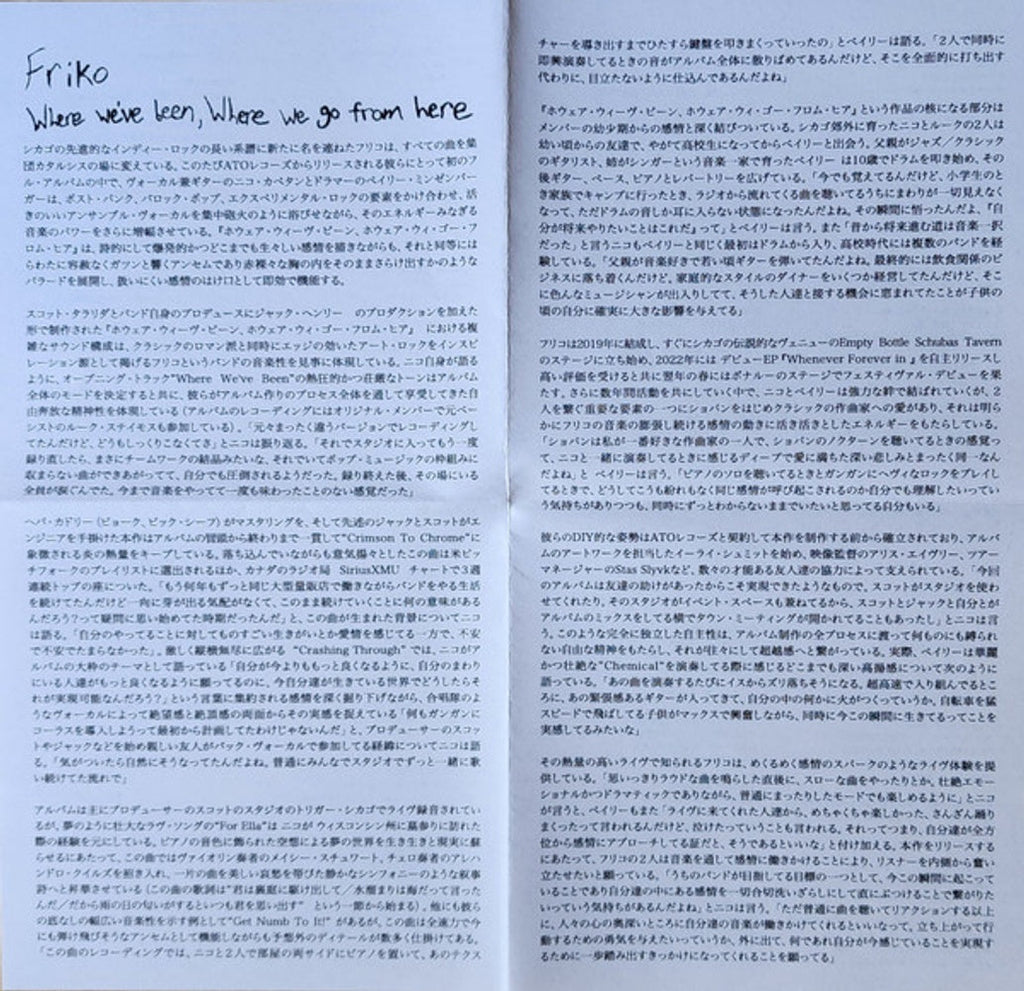 Friko
Where we've been, Where we go from here
シカゴの先進的なインディー・ロックの長い系譜に新たに名を連ねたフリコは、すべての曲を集
団カタルシスの場に変えている。このたびATOレコーズからリリースされる彼らにとって初のフ
ル・アルバムの中で、ヴォーカル兼ギターのニコ・カペタンとドラマーのベイリー・ミンゼンバー
ガーは、ポスト・パンク、バロック・ポップ、エクスペリメンタル・ロックの要素をかけ合わせ、活
きのいいアンサンブル・ヴォーカルを集中砲火のように浴びせながら、そのエネルギーみなぎる
音楽のパワーをさらに増幅させている。『ホウェア・ウィーヴ・ビーン、ホウェア・ウィ・ゴー・フ
ロム・ヒア』は、詩的にして爆発的かつどこまでも生々しい感情を描きながらも、それと同等には
らわたに容赦なくガツンと響くアンセムであり赤裸々な胸の内をそのままさらけ出すかのような
バラードを展開し、扱いにくい感情のはけ口として即効で機能する。
スコット・タラリダとバンド自身のプロデュースにジャック・ヘンリー のプロダクションを加えた
形で制作された『ホウェア・ウィーヴ・ビーン、ホウェア・ウィ・ゴー・フロム・ヒア』 における複
雑なサウンド構成は、クラシックのロマン派と同時にエッジの効いたアート・ロックをインスピ
レーション源として掲げるフリコというバンドの音楽性を見事に体現している。ニコ自身が語る
ように、オープニング・トラック"Where We've Been"の熱狂的かつ荘厳なトーンはアルバム
全体のモードを決定すると共に、彼らがアルバム作りのプロセス全体を通して享受してきた自
由奔放な精神性を体現している（アルバムのレコーディングにはオリジナル・メンバーで元ベー
シストのルーク・ステイモスも参加している）。「元々まったく違うバージョンでレコーディングし
てたんだけど、どうもしっくりこなくてさ」とニコは振り返る。「それでスタジオに入ってもう一度
録り直したら、まさにチームワークの結晶みたいな、それでいてポップ・ミュージックの枠組みに
収まらない曲ができあがってて、自分でも圧倒されるようだった。録り終えた後、その場にいる
全員が涙ぐんでた。今まで音楽をやってて一度も味わったことのない感覚だった」
ヘバ・カドリー（ビョーク、ビック・シーフ）がマスタリングを、そして先述のジャックとスコットがエ
ンジニアを手掛けた本作はアルバムの冒頭から終わりまで一貫して"Crimson To Chrome"に
象徴される炎の熱量をキープしている。落ち込んでいながらも意気揚々としたこの曲は米ピッ
チフォークのプレイリストに選出されるほか、カナダのラジオ局 SiriusXMU チャートで３週
連続トップの座についた。「もう何年もずっと同じ大型量販店で働きながらバンドをやる生活
を続けてたんだけど一向に芽が出る気配がなくて、このまま続けていくことに何の意味がある
んだろう？って疑問に思い始めてた時期だったんだ」と、この曲が生まれた背景についてニコ
は語る。「自分のやってることに対してものすごい生きがいとか愛情を感じてる一方で、不安
で不安でたまらなかった」。激しく縦横無尽に広がる "Crashing Through" では、ニコがア
ルバムの大枠のテーマとして語っている「自分が今よりももっと良くなるように、自分のまわり
にいる人達がもっと良くなるように願ってるのに、今自分達が生きている世界でどうしたらそ
れが実現可能なんだろう？」という言葉に集約される感情を深く掘り下げながら、合唱隊のよ
うなヴォーカルによって絶望感と絶頂感の両面からその実感を捉えている「何もガンガンに
コーラスを導入しようって最初から計画してたわけじゃないんだ」と、プロデューサーのスコッ
トやジャックなどを始め親しい友人がバック・ヴォーカルで参加してる経緯についてニコは語
る。「気がついたら自然にそうなってたんだよね。普通にみんなでスタジオでずっと一緒に歌
い続けてた流れで」
アルバムは主にプロデューサーのスコットのスタジオのトリガー・シカゴでライヴ録音されてい
るが、夢のように壮大なラヴ・ソングの"For Ella"は ニコが ウィスコンシン州に墓参りに訪れた
際の経験を元にしている。ピアノの音色に飾られた空想による夢の世界を生き生きと現実に蘇
らせるにあたって、この曲ではヴァイオリン奏者のメイシー・スチュワート、チェロ奏者のアレハ
ンドロ・クイルズを招き入れ、一片の曲を美しい哀愁を帯びた静かなシンフォニーのような叙事
詩へと昇華させている（この曲の歌詞は"君は裏庭に駆け出して／水溜まりは海だって言った
んだ／だから雨の日の匂いがするといつも君を思い出す" という一節から始まる）。他にも彼ら
の底なしの幅広い音楽性を示す例として"Get Numb To It!" があるが、この曲は全速力で今
にも弾け飛びそうなアンセムとして機能しながらも予想外のディテールが数多く仕掛けてある。
「この曲のレコーディングでは、ニコと２人で部屋の両サイドにピアノを置いて、あのテクス
チャーを導き出すまでひたすら鍵盤を叩きまくっていったの」とベイリーは語る。「２人で同時に
即興演奏してるときの音がアルバム全体に散りばめてあるんだけど、そこを全面的に打ち出す
代わりに、目立たないように仕込んであるんだよね」
『ホウェア・ウィーヴ・ビーン、ホウェア・ウィ・ゴー・フロム・ヒア』という作品の核になる部分は
メンバーの幼少期からの感情と深く結びついている。シカゴ郊外に育ったニコとルークの2人は
幼い頃からの友達で、やがて高校生になってからベイリーと出会う。父親がジャズ／クラシック
のギタリスト、姉がシンガーという音楽一家で育ったベイリー は10歳でドラムを叩き始め、その
後ギター、ベース、ピアノとレパートリーを広げている。「今でも覚えてるんだけど、小学生のと
き家族でキャンプに行ったとき、ラジオから流れてくる曲を聴いてるうちにまわりが一切見えなく
なって、ただドラムの音しか耳に入らない状態になったんだよね。その瞬間に悟ったんだよ、『自
分が将来やりたいことはこれだ』って」とベイリーは言う。また「昔から将来進む道は音楽一択
だった」と言うニコもベイリーと同じく最初はドラムから入り、高校時代には複数のバンドを経
験している。「父親が音楽好きで若い頃ギターを弾いてたんだよね。最終的には飲食関係のビ
ジネスに落ち着くんだけど。家庭的なスタイルのダイナーをいくつか経営してたんだけど、そこ
に色んなミュージシャンが出入りしてて、そうした人達と接する機会に恵まれてたことが子供の
頃の自分に確実に大きな影響を与えてる」
フリコは2019年に結成し、すぐにシカゴの伝説的なヴェニューのEmpty Bottle Schubas Tavern
のステージに立ち始め、2022年には デビューEP『Whenever Forever in 』を自主リリースし
高い評価を受けると共に翌年の春にはボナルーのステージにてフェスティヴァル・デビューを果
たす。さらに数年間活動を共にしていく中で、ニコとベイリーは強力な絆で結ばれていくが、２
人を繋ぐ重要な要素の一つにショパンをはじめクラシックの作曲家への愛があり、それは明ら
かにフリコの音楽の膨張し続ける感情の動きに活き活きとしたエネルギーをもたらしている。
「ショパンは私が一番好きな作曲家の一人で、ショパンのノクターンを聴いてるときの感覚っ
て、ニコと一緒に演奏してるときに感じるディープで愛に満ちた深い悲しみとまったく同一なん
だよね」と ベイリーは言う。「ピアノのソロを聴いてるときとガンガンにヘヴィなロックをプレイし
てるときで、どうしてこうも紛れもなく同じ感情が呼び起こされるのか自分でも理解したいってい
う気持ちがありつつも、同時にずっとわからないままでいたいと思ってる自分もいる」
彼らのDIY的な姿勢はATOレコーズと契約して本作を制作する前から確立されており、アルバ
ムのアートワークを担当したイーライ・シュミットを始め、映像監督のアリス・エイヴリー、ツアー
マネージャーのStas Slyvkなど、数々の才能ある友人達の協力によって支えられている。「今回
のアルバムは友達の助けがあったからこそ実現できたようなもので。スコットがスタジオを使わ
せてくれたり、そのスタジオがイベント・スペースも兼ねてるから、スコットとジャックと自分とが
アルバムのミックスをしてる横でタウン・ミーティングが開かれてることもあったし」とニコは言
う。このような完全に独立した自主性は、アルバム制作の全プロセスに渡って何ものにも縛られ
ない自由な精神をもたらし、それが往々にして超越感へと繋がっている。実際、ベイリーは華麗
かつ壮絶な"Chemical"を演奏してる際に感じるどこまでも深い高揚感について次のように
語っている。「あの曲を演奏するたびにイスからズリ落ちそうになる。超高速で入り組んでるとこ
ろに、あの緊張感あるギターが入ってきて、自分の中の何かに火がつくっていうか。自転車を猛
スピードで飛ばしてる子供がマックスで興奮しながら、同時に今この瞬間に生きてるってことを
実感してるみたいな」
その熱量の高いライヴで知られるフリコは、めくるめく感情のスパークのようなライヴ体験を提
供している。「思いっきりラウドな曲を鳴らした直後に、スローな曲をやったりとか。壮絶エモー
ショナルかつドラマティックでありながら、普通にまったりしたモードでも楽しめるように」とニコ
が言うと、ベイリーもまた「ライヴに来てくれた人達から、めちゃくちゃ楽しかった、さんざん踊り
まくったって言われるんだけど、泣けたっていうことも言われる。それってつまり、自分達が全方
位から感情にアプローチしてる証だと、そうであるといいな」と付け加える。本作をリリースする
にあたって、フリコの２人は音楽を通して感情に働きかけることにより、リスナーを内側から奮い
立たせたいと願っている。「うちのバンドが目指してる目標の一つとして、今この瞬間に起こって
いることであり自分達の中にある感情を一切合切洗いざらしにして直にぶつけることで繋がりた
いっていう気持ちがあるんだよね」とニコは言う。「ただ普通に曲を聴いてリアクションする以上
に、人々の心の奥深いところに自分達の音楽が働きかけてくれるといいなって。立ち上がって行
動するための勇気を与えたいっていうか、外に出て、何であれ自分が今感じていることを実現す
るために一歩踏み出すきっかけになってくれることを願ってる」